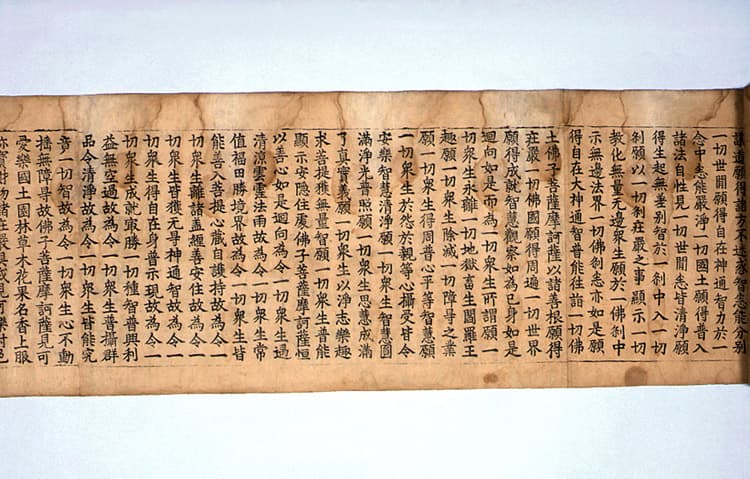 一切世間願得自在神通智力於一
念中悉能嚴淨一切國土願得普入
諸法自性見一切世間悉皆清淨願
得生起無差別智於一剎中入一切
剎願以一切剎莊嚴之事顯示一切
教化無量无邊衆生願於一佛剎中
示無邊法界一切佛剎悉亦如是願
得自在大神通智普能往詣一切佛
土佛子菩薩摩訶薩以諸善根願得
莊嚴一切佛國願得周遍一切世界
願得成就智慧觀察如為己身如是
迴向如是而為一切衆生所謂願一
切衆生永離一切地獄畜生閻羅王
趣願一切衆生除滅一切障㝵之業
願一切衆生得周普心平等智慧願
一切衆生於怨於親等心攝受皆令
安樂智慧清淨願一切衆生智慧圓
滿淨光普照願一切衆生思慧成滿
了真實義願一切衆生以淨志樂趣
求菩提獲無量智願一切衆生普能
顯示安隱住處佛子菩薩摩訶薩恒
以善心如是迴向為令一切衆生遇
清涼雲霔法雨故為令一切衆生常
值福田勝境界故為令一切衆生皆
能善入菩提心藏自護持故為令一
切衆生離諸蓋纏善安住故為令一
切衆生皆獲无㝵神通智故為令一
切衆生得自在身普示現故為令一
切衆生成就最勝一切種智普興利
益無空過故為令一切衆生普攝群
品令清淨故為令一切衆生皆能究
竟一切智故為令一切衆生心不動
搖無障㝵故佛子菩薩摩訶薩見可
愛樂國土園林草木花果名香上服